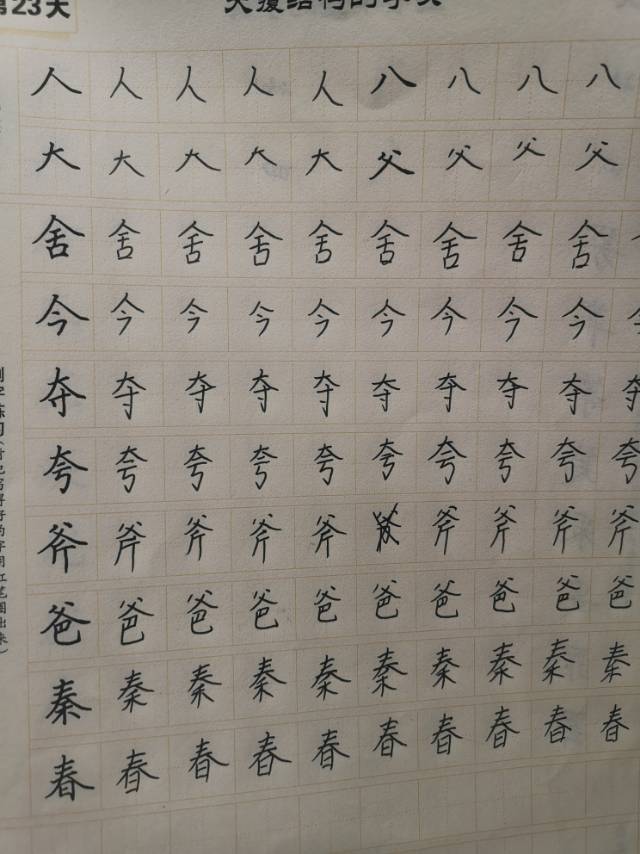 第23天
天覆结构的字头
人人人人人八八八八
大大大大大父父父父
舍舍舍舍舍舍舍舍舍
今今今今今今今今今
夺夺夺夺夺夺夺夺夺夺
夸夸夸夸夸夸夸夸夸夸
斧斧斧斧斧斧斧斧斧
爸爸爸爸爸爸爸爸爸爸
秦秦秦秦秦秦秦秦秦秦
春春春春春春春春春春